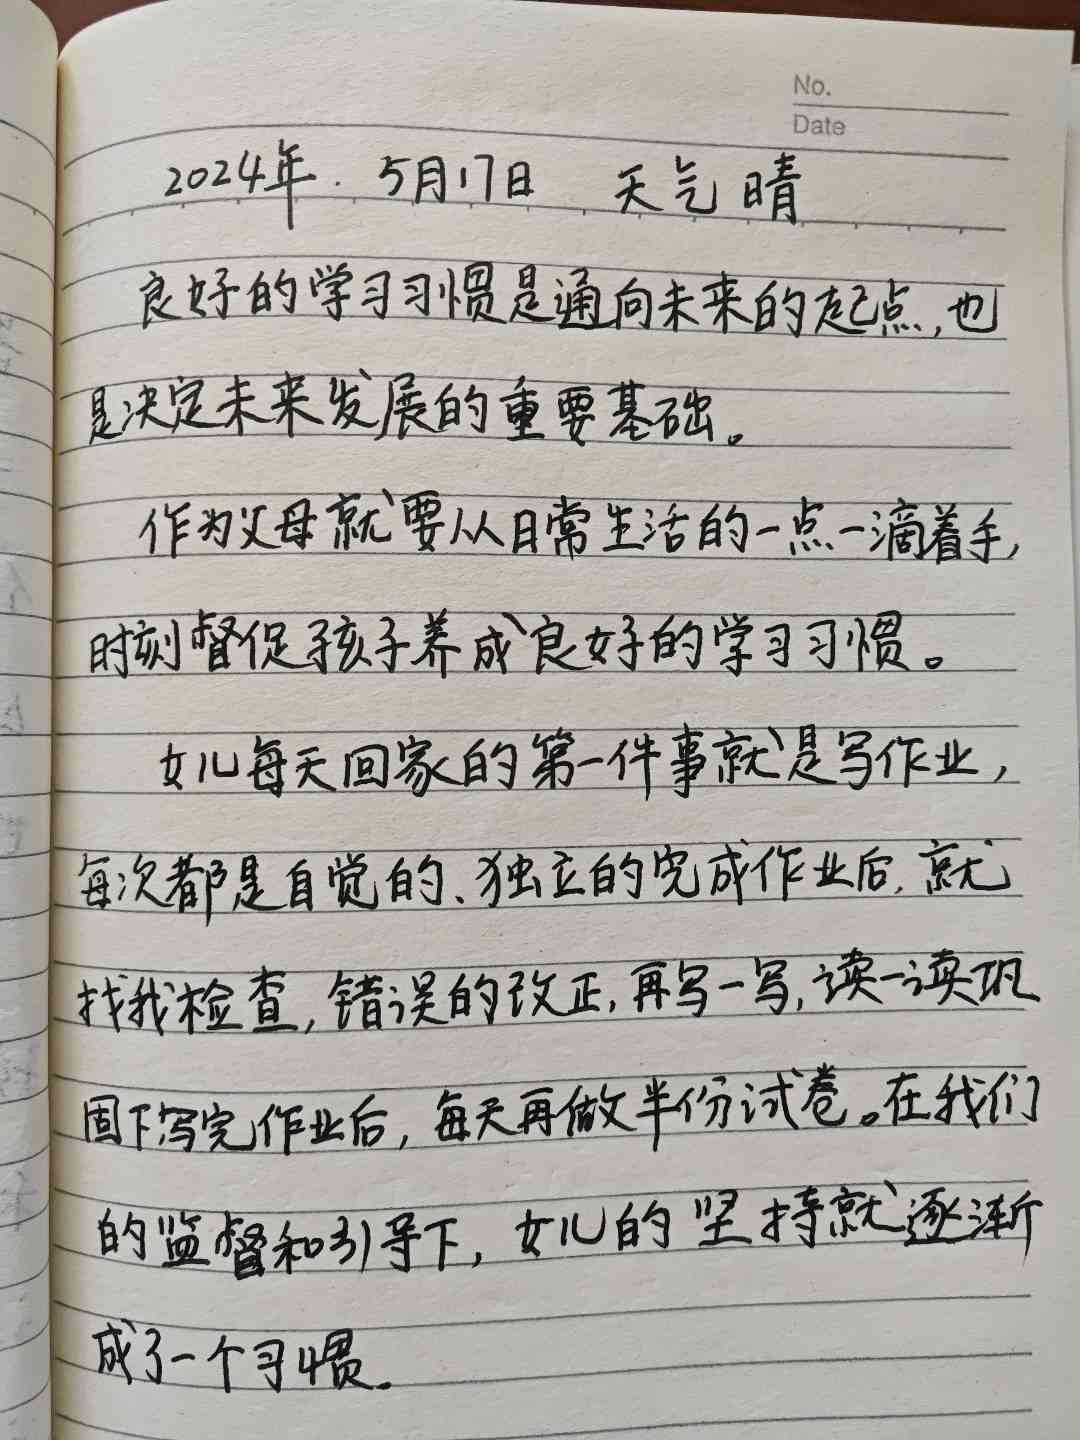 No.
Date
2024年. 5月17日 天气 晴
良好的学习习惯是通向未来的起点,也
是决定未来发展的重要基础。
作为父母就要从日常生活的一点一滴着手,
时刻督促孩子养成良好的学习习惯。
女儿每天回家的第一件事就是写作业,
每次都是自觉的、独立的完成作业后,就
找我检查,错误的改正,再写一写,读一读巩
固下写完作业后,每天再做半份试卷。在我们
的监督和引导下,女儿的坚持就逐渐
成了一个习惯.